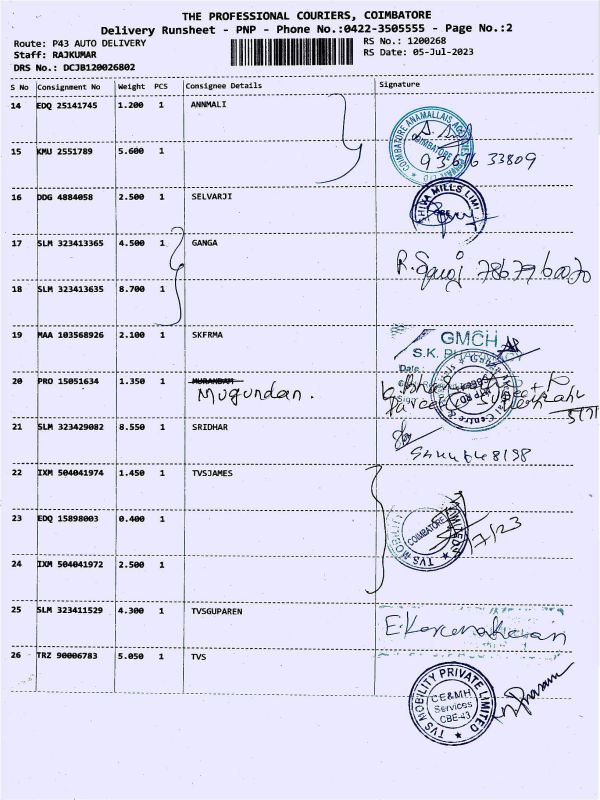 THE PROFESSIONAL COURIERS, COIMBATORE
Delivery Runsheet - PNP - Phone No.:0422-3505555 - Page No.:2
Route: P43 AUTO DELIVERY RS No.: 1200268
Staff: RAJKUMAR RS Date: 05-Jul-2023
DRS No.: DCJB120026802
S No Consignment No Weight PCS Consignee Details Signature
14 EDQ 25141745 1.200 1 ANNMALI
COIMBATORE
15 KMU 2551789 5.600 1
93676 33809
16 DDG 4884058 2.500 1 SELVARJI
MILLS LIMI
17 SLM 323413365 4.500 1 GANGA
18 SLM 323413635 8.700 1
19 MAA 103568926 2.100 1 SKFRMA
GMCH
S.K.
Date
20 PRO 15051634 1.350 1 MURANDAM
Mugundan.
21 SLM 323429082 8.550 1 SRIDHAR
22 IXM 504041974 1.450 1 TVSJAMES
23 EDQ 15898003 0.400 1
TVS MOBILITY
COIMBATORE
24 IXM 504041972 2.500 1
25 SLM 323411529 4.300 1 TVSGUPAREN
26 TRZ 90006783 5.050 1 TVS
TVS MOBILITY PRIVATE LIMITED
CE&MH
Services
CBE-43